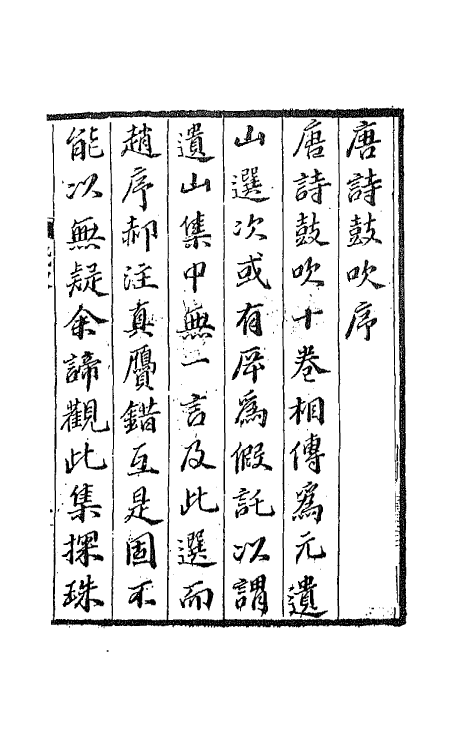 唐詩鼓吹序
唐詩鼓吹十卷相傳爲元遺
山選次或有斥爲假託以謂
遺山集中無一言及此選而
趙序郝注真贗錯互是固不
能以無疑余諦觀此集探珠